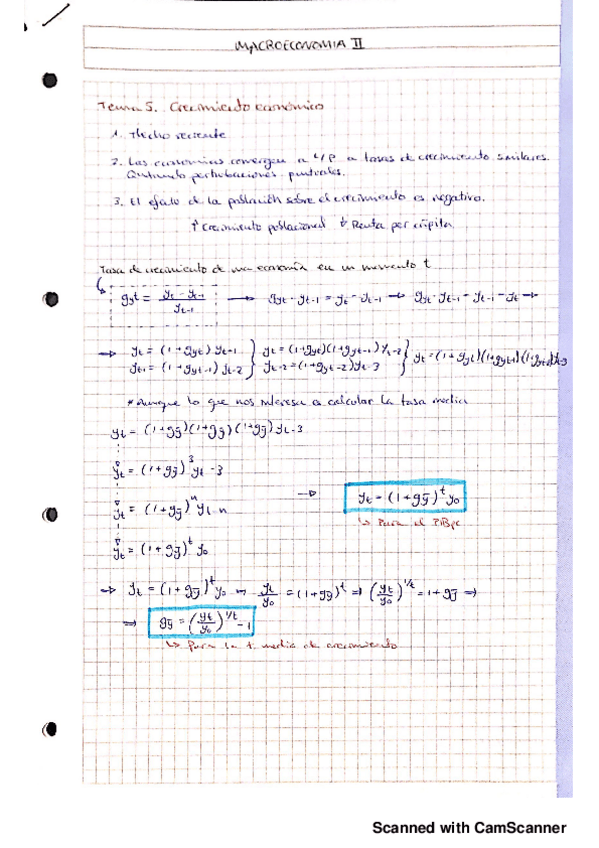 MACROECONOMIA II
Tema 5. Crecimiento económico
1. Hecho reciente
2. Las economías convergen a L/P a tasas de crecimiento similares.
Quitando perturbaciones puntuales.
3. El efecto de la población sobre el crecimiento es negativo.
↑ Crecimiento poblacional ↓ Renta per cápita
Tasa de crecimiento de una economía en un momento t
gyt = (yt - yt-1)/yt-1 → gyt·yt-1 = yt - yt-1 → gyt·yt-1 - yt-1 - yt →
→ yt = (1+gyt) yt-1 } yt = (1+gyt)(1+gyt-1) yt-2 } yt = (1+gyt)(1+gyt-1)(1+gyt-2)yt-3
yt-1 = (1+gyt-1) yt-2 } yt-2 = (1+gyt-2) yt-3
* Aunque lo que nos interesa es calcular la tasa media
yt = (1+gȳ)(1+gȳ)(1+gȳ) yt-3
yt = (1+gȳ)³ yt-3
yt = (1+gȳ)ⁿ yt-n → yt = (1+gȳ)ᵗ y0
↳ Para el PIBpc
yt = (1+gȳ)ᵗ y0
→ yt = (1+gȳ)ᵗ y0 → yt/y0 = (1+gȳ)ᵗ ⇒ (yt/y0)^1/t = 1+gȳ ⇒
⇒ gȳ = (yt/y0)^1/t - 1
↳ Para la t. media de crecimiento
Scanned with CamScanner